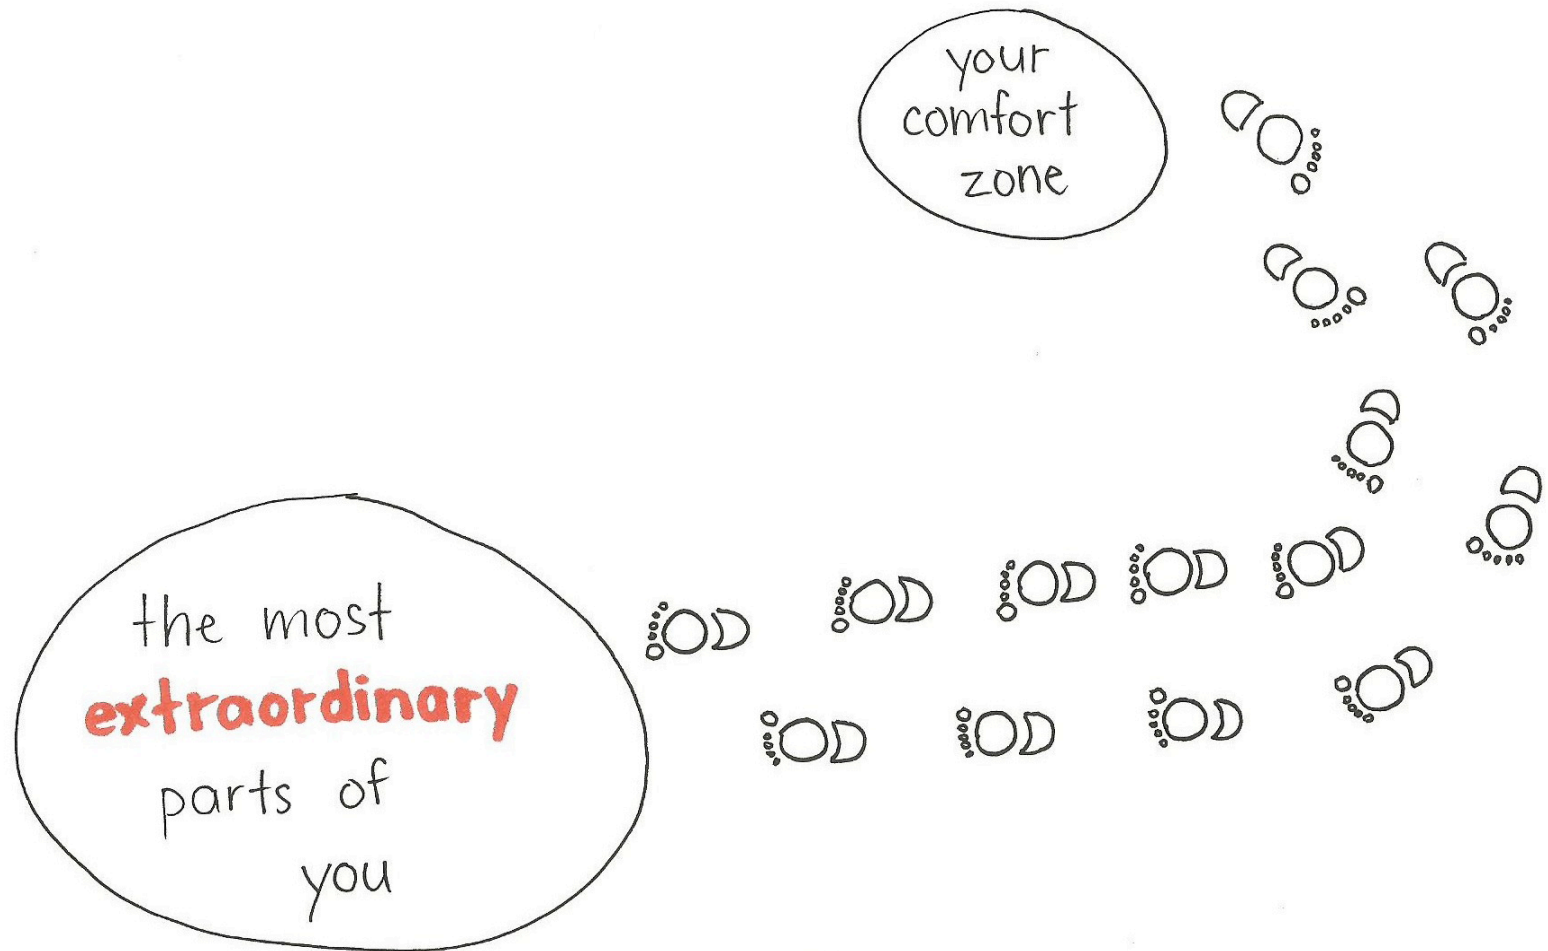 your
comfort
zone
the most
extraordinary
parts of
you